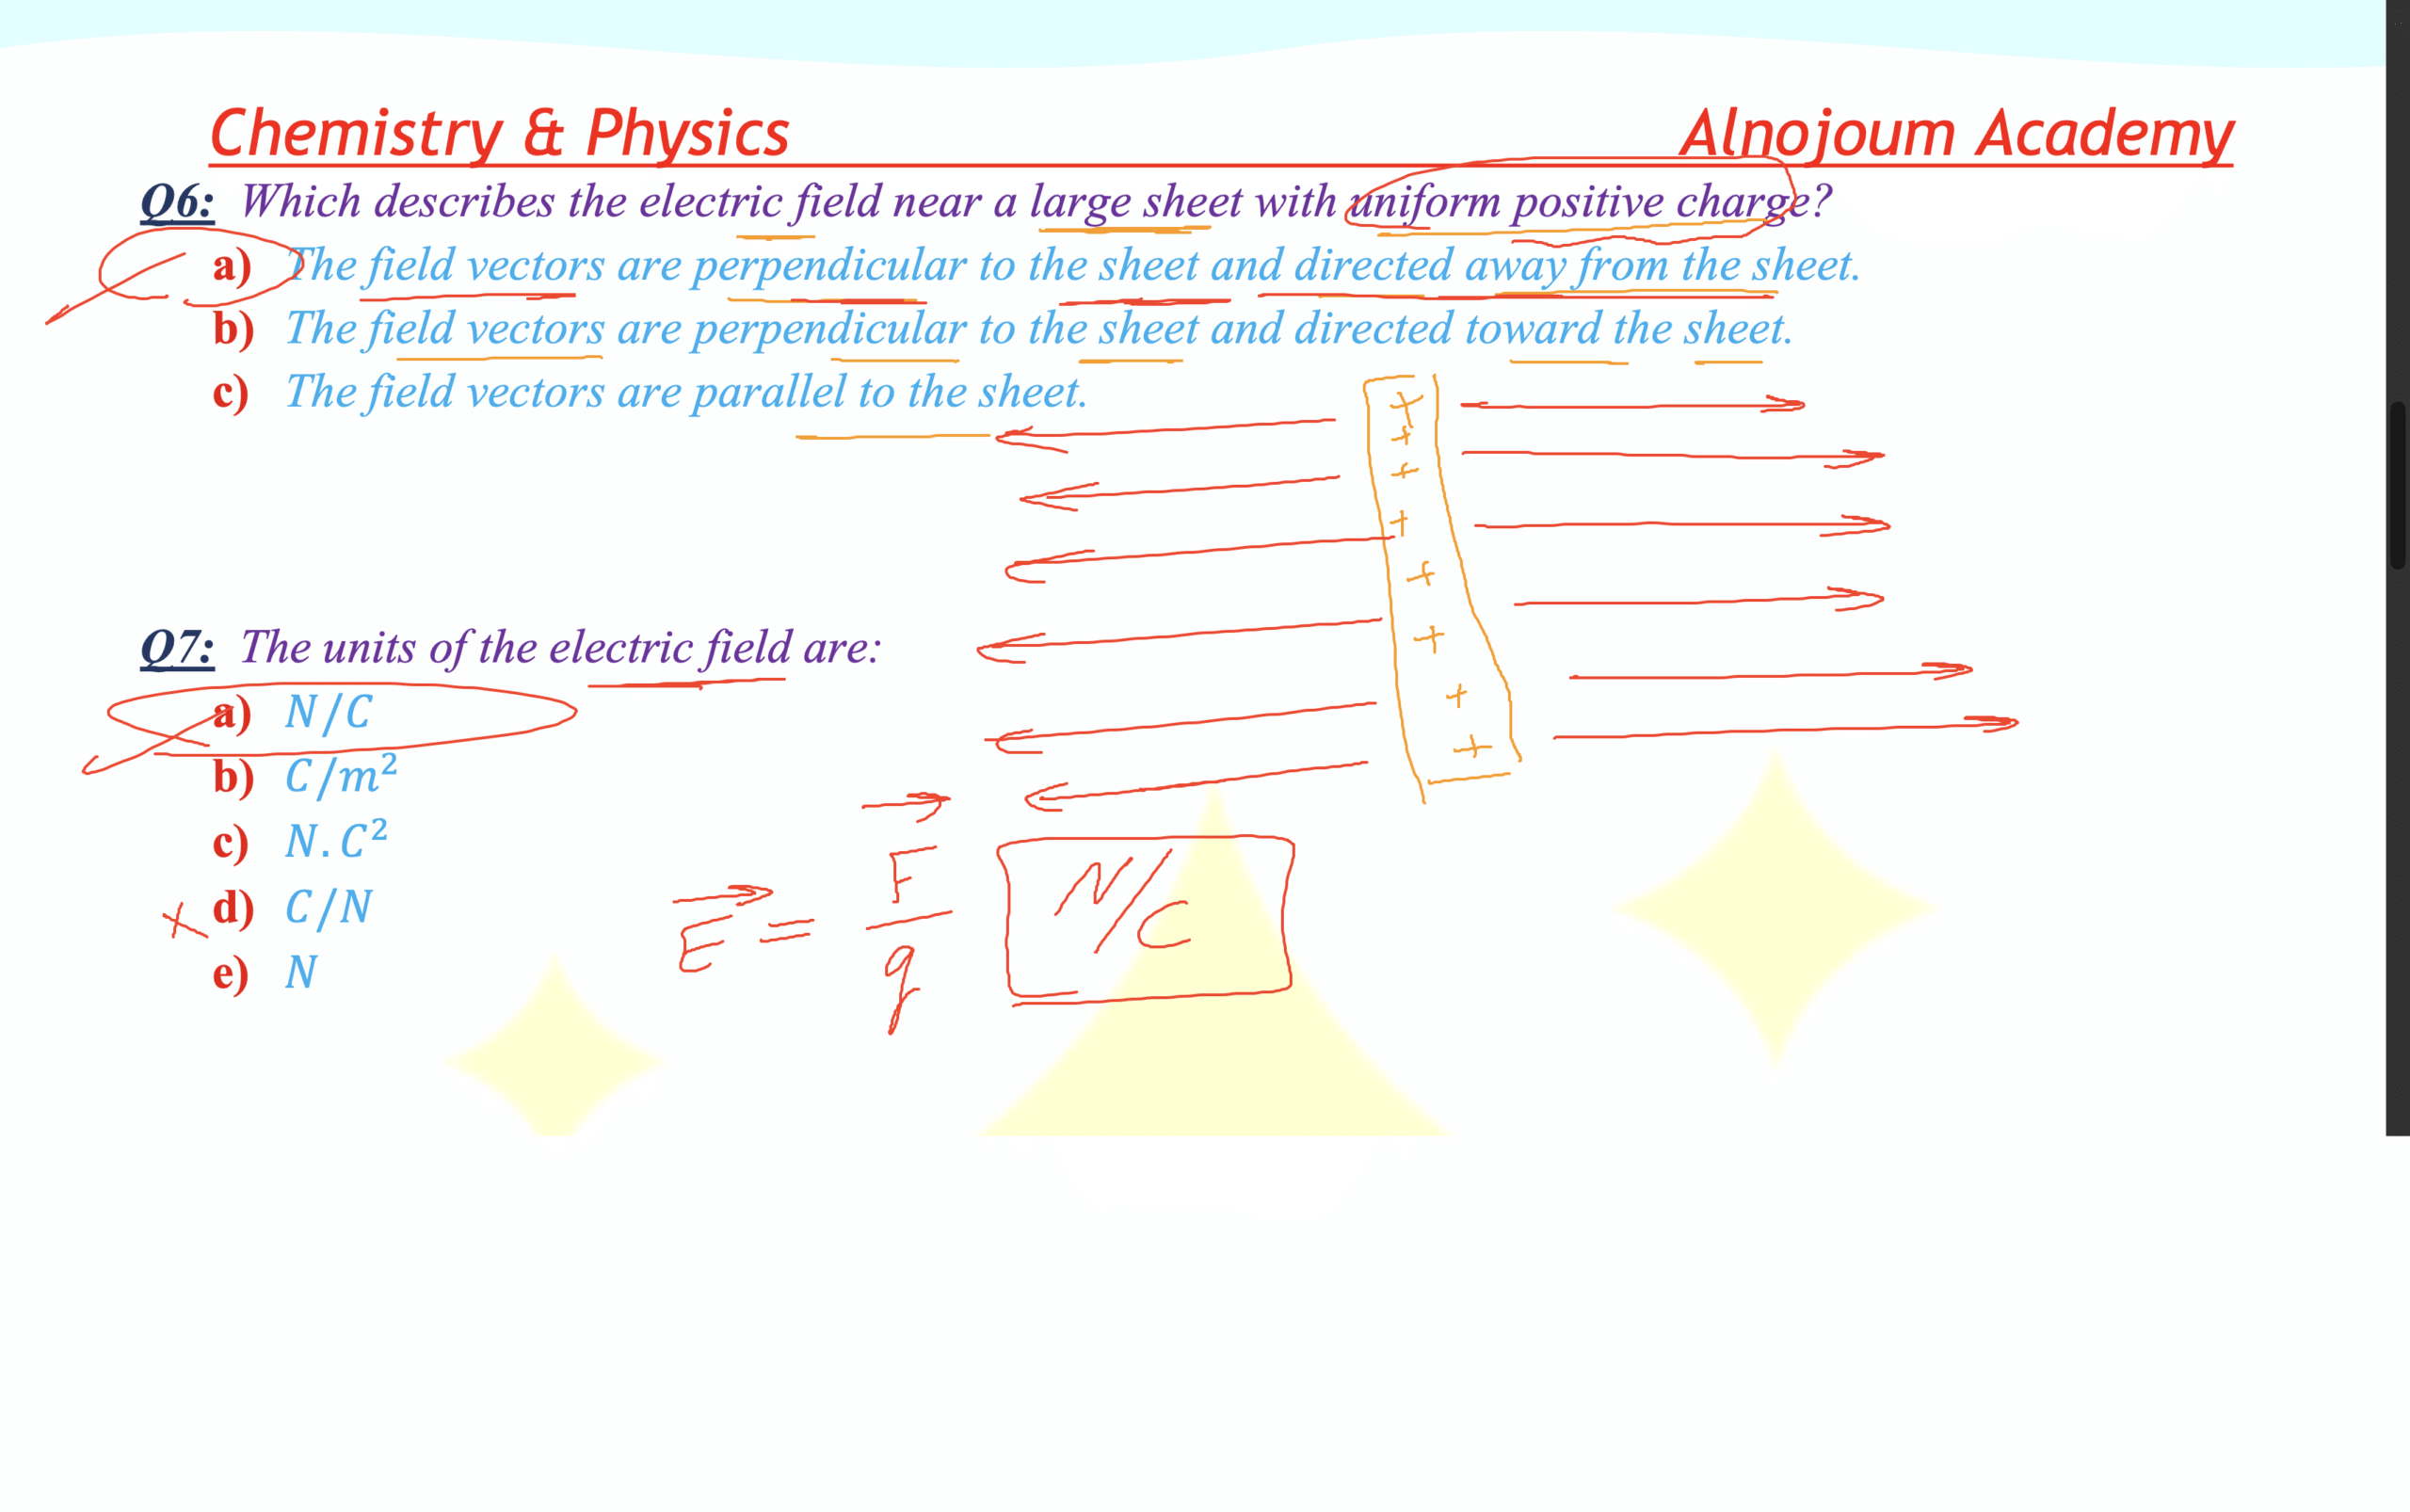 Chemistry & Physics Alnojoum Academy
Q6: Which describes the electric field near a large sheet with uniform positive charge?
a) The field vectors are perpendicular to the sheet and directed away from the sheet.
b) The field vectors are perpendicular to the sheet and directed toward the sheet.
c) The field vectors are parallel to the sheet.
+
+
+
+
+
+
+
+
Q7: The units of the electric field are:
a) N/C
b) C/m²
c) N.C²
d) C/N
e) N
E = F/q N/C